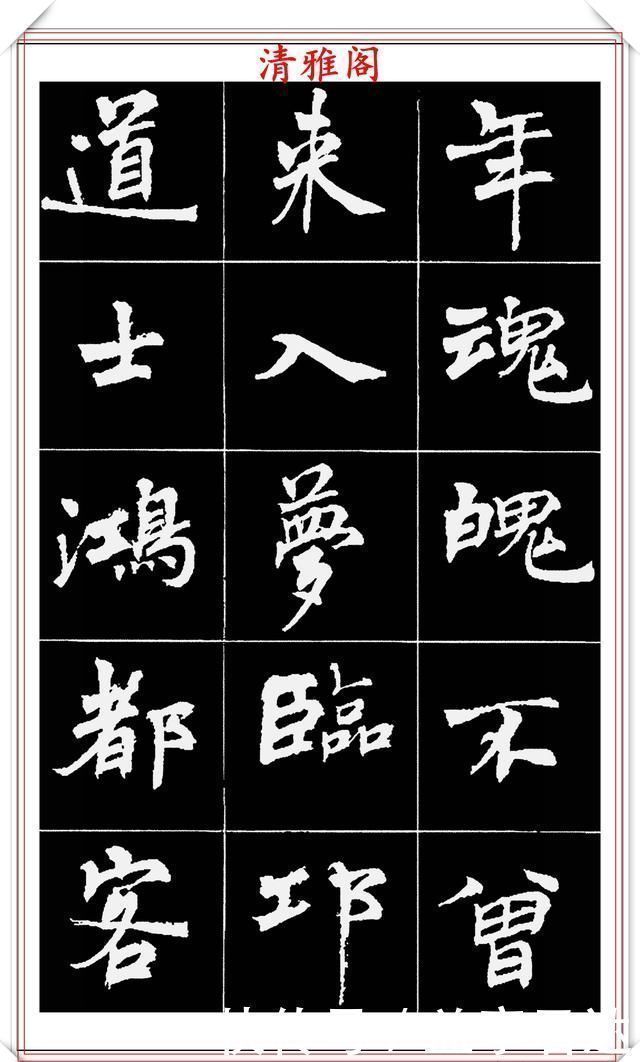 清雅阁
年魂魄不曾
来入夢臨邛
道士鴻都客